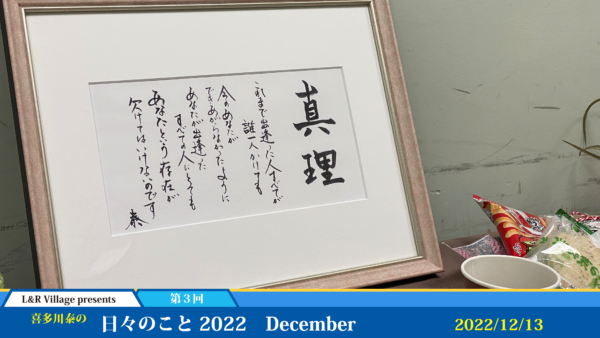 真理
これまで出逢った人すべてが
誰一人かけても
今のあなたが
できあがらなかったように
あなたが出逢った
すべての人にとっても
あなたという存在が
欠けてはいけないのです
泰
L&R Village presents
第3回
喜多川泰の
日々のこと 2022 December
2022/12/13